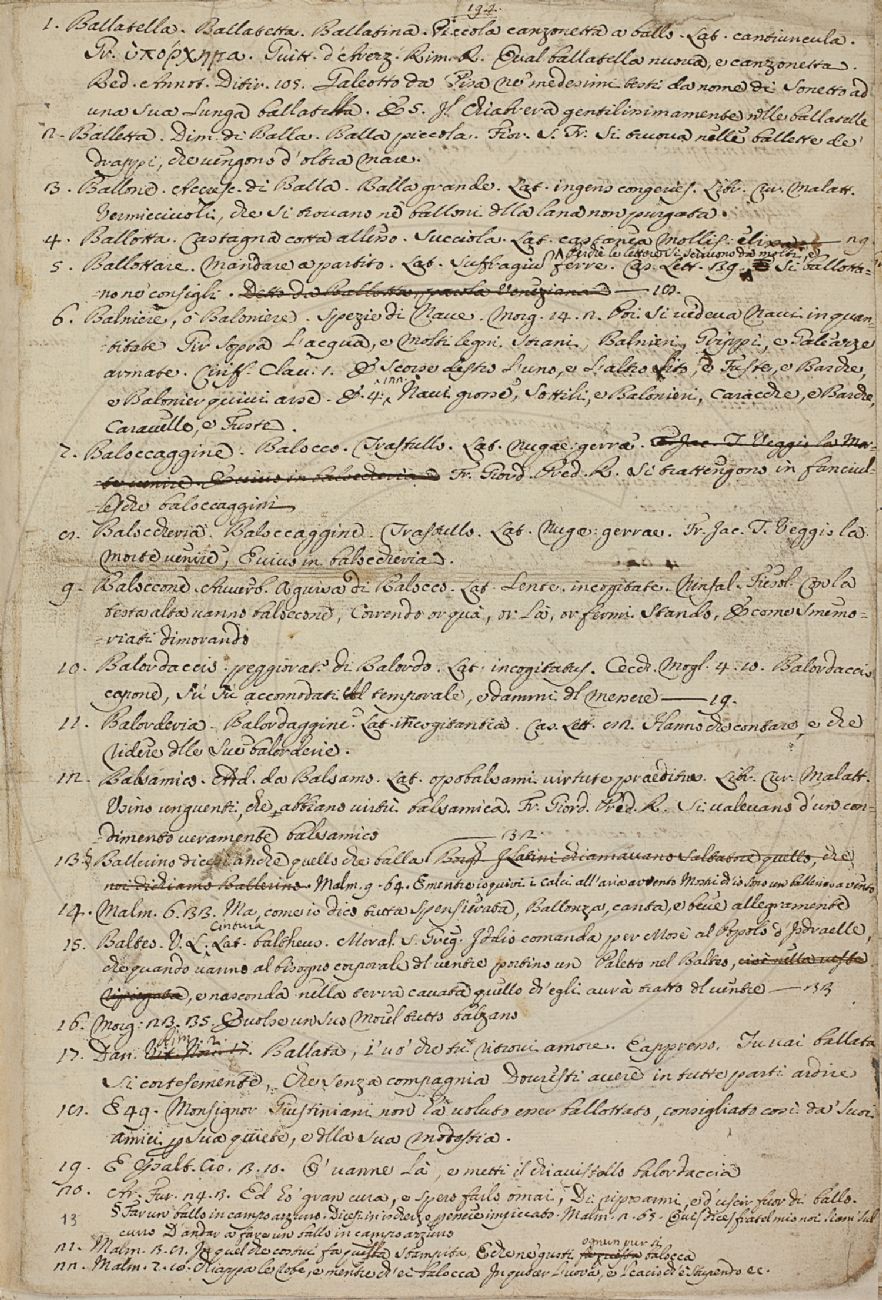 194.
1. Ballatella. Ballatetta. Ballatina. Piccola canzonetta a ballo. Lat. cantiuncula.
Gr. ὑπόρχημα. Guitt. d'Arezz. Rim. R. Qual ballatella nuova, e canzonetta.
Red. Annot. Ditir. 105. Galeotto da Pisa ne' medesimi testi da nome di Sonetto ad
una sua lunga ballatella. E 5. Il Chiabrera gentilissimamente nelle ballatelle
2. Balletta. Dim. di Balla. Balla piccola. Fior. S. Fr. Si truova nelle ballette de'
drappi, che vengono d'oltra mare.
3. Ballone. Accresc. di Balla. Balla grande. Lat. ingens congeries. Libr. cur. Malatt.
Vermicciuoli, che si trovano ne' balloni della lana non purgata.
4. Ballotta. Castagna cotta allesso. Succiola. Lat. castanea mollis. elixa. — 29.
5. Ballottare. Mandare a partito. Lat. suffragium ferre. Cas. Lett. 139. E si ballotta-
perchè le lettere si scrivono da molti, e
-no ne' consigli. Detto da Ballotta, parola Veneziana — 18.
6. Balniere, o Baloniere. Spezie di Nave. Morg. 14. 2. Poi si vedeva Navi in quan-
-titate Gir sopra l'acqua, e molti legni strani, Balnieri, Grippi, e Galeazze
armate. Ciriff. Calv. 1. E scorse destro l'uno, e l'altro lito, E Fuste, e Barche,
e Balonier quivi arse. E 4. Navi grosse, sottili, e Balonieri, Caracche, e Barche,
Caravelle, e Fuste.
7. Baloccaggine. Balocco. Trastullo. Lat. nugae, gerrae. Fr. Jac. T. Veggio la Mor-
-te venire E vivo in baloccheria Fr. Giord. Pred. R. Si trattengono in fanciul-
-lesche baloccaggini
8. Baloccheria. Baloccaggine. Trastullo. Lat. Nugae, gerrae. Fr. Jac. T. Veggio la
morte venire, E vivo in baloccheria.
9. Baloccone. Avverb. A guisa di Balocco. Lat. Lente, incogitate. Pataf. Con la
testa alta vanno baloccone, Correndo or quà, or là, or fermi stando, E come smemo-
-riati dimorando
10. Balordaccio. peggiorat. di Balordo. Lat. incogitatus. Cecch. Mogl. 4. 10. Balordaccio
capone, sù sù accomodati al temporale, e dammi del messere — 19.
11. Balorderia. Balordaggine. Lat. incogitantia. Cas. Lett. 82. Hanno che contare, e che
ridere delle sue balorderie.
12. Balsamico. Add. da Balsamo. Lat. opobalsami virtute praeditus. Libr. cur. Malatt.
Usino unguenti, che abbiano virtù balsamica. Fr. Giord. Pred. R. Si valevano d'un con-
-dimento veramente balsamico — 132.
13. § Ballerino dicesi anche quello che balla I Latini chiamavano Saltatore quello, che
noi dichiamo Ballerino. Malm. 9. 64. E mentre io quivi i calci all'aria avvento Mostri ch'io sono un ballerino a vento
14. Malm. 6. 33. Ma, come io dico tutta spensierata, Ballonza, canta, e beve allegramente
15. Balteo. V. L. Cintura Lat. baltheus. Moral. S. Greg. Iddio comanda per Mosè al Popolo d'Isdraelle,
che quando vanno al bisogno corporale del ventre portino un Paletto nel Balteo, cioè nella vesta
ripiegata, e nasconda nella terra cavata quello ch'egli avrà tratto del ventre — 133
16. Morg. 23. 35. E volse un suo morel tutto balzano
17. Dan. Rim. 2. Ballata, i' vo' che tu ritrovi amore. E appresso. Tu vai ballata
Sì cortesemente, Che senza compagnia Dovresti avere in tutte parti ardire
18. E 49. Monsignor Giustiniani non ha voluto esser ballottato, consigliato così da' suoi
amici, per sua quiete, e della sua modestia.
19. E Spalt. Cio. 3. 10. E vanne là, e metti il chiavistello balordaccia
20. Ar. Fur. 24. 3. Ed ho gran cura, e spero farlo omai, Di riposarmi, e d'uscir fuor di ballo.
§ Far un ballo in campo azzurro. Dicesi in ischerzo per essere impiccato. Malm. 2. 65.
13 curo D'andar a fare un ballo in campo azzurro
21. Malm. 3. 8. In quel che costui fa questa stampita, E che ne' gusti ognun pur si balocca
22. Malm. 7. 10. Chiappa le robe, e mentre ch'ei balocca In quocer l'uova, e 'l cacio ch'è stupendo ec.